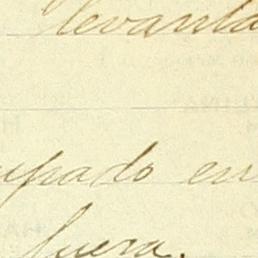 levanta
upado en
fuera.